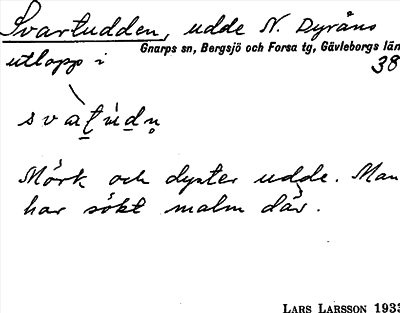 Svartudden, udde N. Dyråns
Gnarps sn, Bergsjö och Forsa tg, Gävleborgs län
utlopp i 38
Mörk och dyster udde. Man
har sökt malm där.
LARS LARSSON 1933